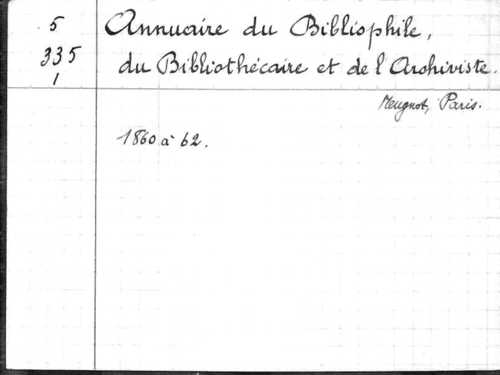 5
335
1
Annuaire du Bibliophile,
du Bibliothécaire et de l'Archiviste.
Meugnot, Paris.
1860 à 62.